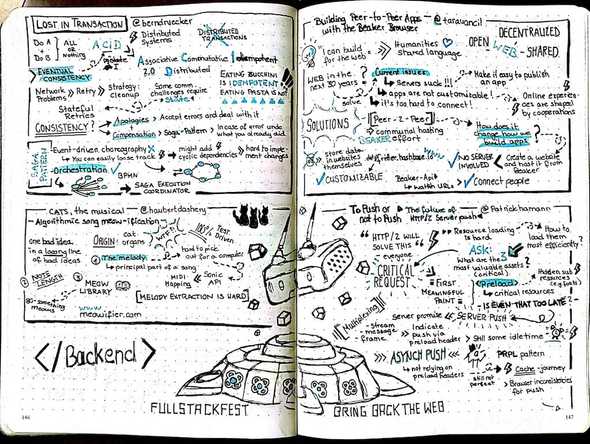 LOST IN TRANSACTION @berndruecker
Do A
Do B
ALL or Nothing
ACiD
Isolate
Distributed Systems
DISTRIBUTED TRANSACTIONS
ASSOCIATIVE COMMUTATIVE IDEMPOTENT
2.0 DISTRIBUTED
EVENTUAL CONSISTENCY
Network Problems
Retry
Strategy: cleanup
Some comm. challenges require state
EATING ZUCCHINI
IS IDEMPOTENT
EATING PASTA IS NOT
Stateful Retries
CONSISTENCY?
Apologies
Accept errors and deal with it
Compensation
Saga-Pattern
In case of error undo what you already did
SAGA PATTERN
Event-driven choreography
You can easily loose track
might add cyclic dependencies
hard to implement changes
Orchestration
BPMN
SAGA EXECUTION COORDINATOR
CATS, the musical @hawbertdashery
Algorithmic song meow-ification
one bad idea in a losing line of bad ideas
ORIGIN:
cat organs
Write it
TEST DRIVEN
1 The melody
principal part of a song
hard to pick out for a computer
2 NOTE LENGTH
MEOW LIBRARY
MIDI Mapping
Sonic API
80-something meows
[MELODY EXTRACTION IS HARD]
www.
meowifier.com
</Backend>
FULLSTACKFEST
146
Building Peer-to-Peer Apps @taravancil
with the Beaker Browser
I can build for the web
Humanities shared language
DECENTRALIZED
OPEN WEB-SHARED
WEB in the next 30 years
Current issues:
Servers suck!!!
apps are not customisable!
it's too hard to connect!
solve
Make it easy to publish an app
Online experiences are shaped by cooperations
SOLUTIONS
[Peer-2-Peer]
communal hosting effort
BEAKER
How does it change how we build apps?
store data in websites themselves
NO SERVER INVOLVED
Create a website and host it from Beaker
CUSTOMIZABLE
Beaker-Api
watch URLs
Connect people
To Push or not to Push
The future of HTTP/2 Server push
@Patrickhamann
"HTTP/2 WILL SOLVE THIS"
everyone
Resource loading is hard
How to load them most efficiently?
ASK:
What are the most valuable assets? (critical)
CRITICAL REQUEST
FIRST MEANINGFUL PAINT
Preload
critical resources
Hidden sub resources
IS EVEN THAT TOO LATE?
Multiplexing
- stream
- message
- frame
Server promise
SERVER PUSH
Indicate push via preload header
Still some idle time
ASYNCH PUSH
not relying on preload headers
still not perfect
PRPL pattern
Cache-journey
Browser inconsistencies for push
BRING BACK THE WEB
147